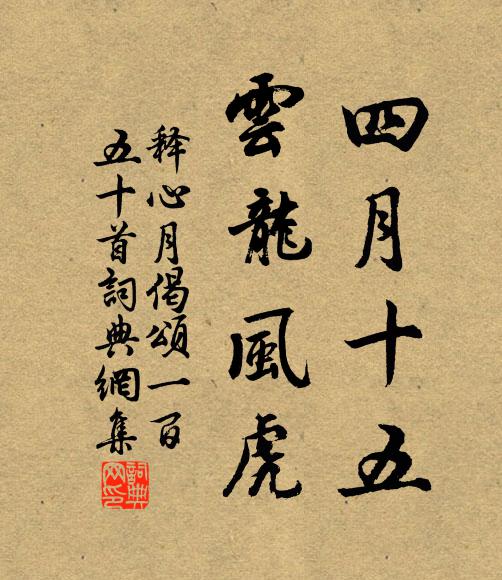 四月十五
雲龍風虎
释心月偈頌一百
五十首詞典網集
詞典
网印